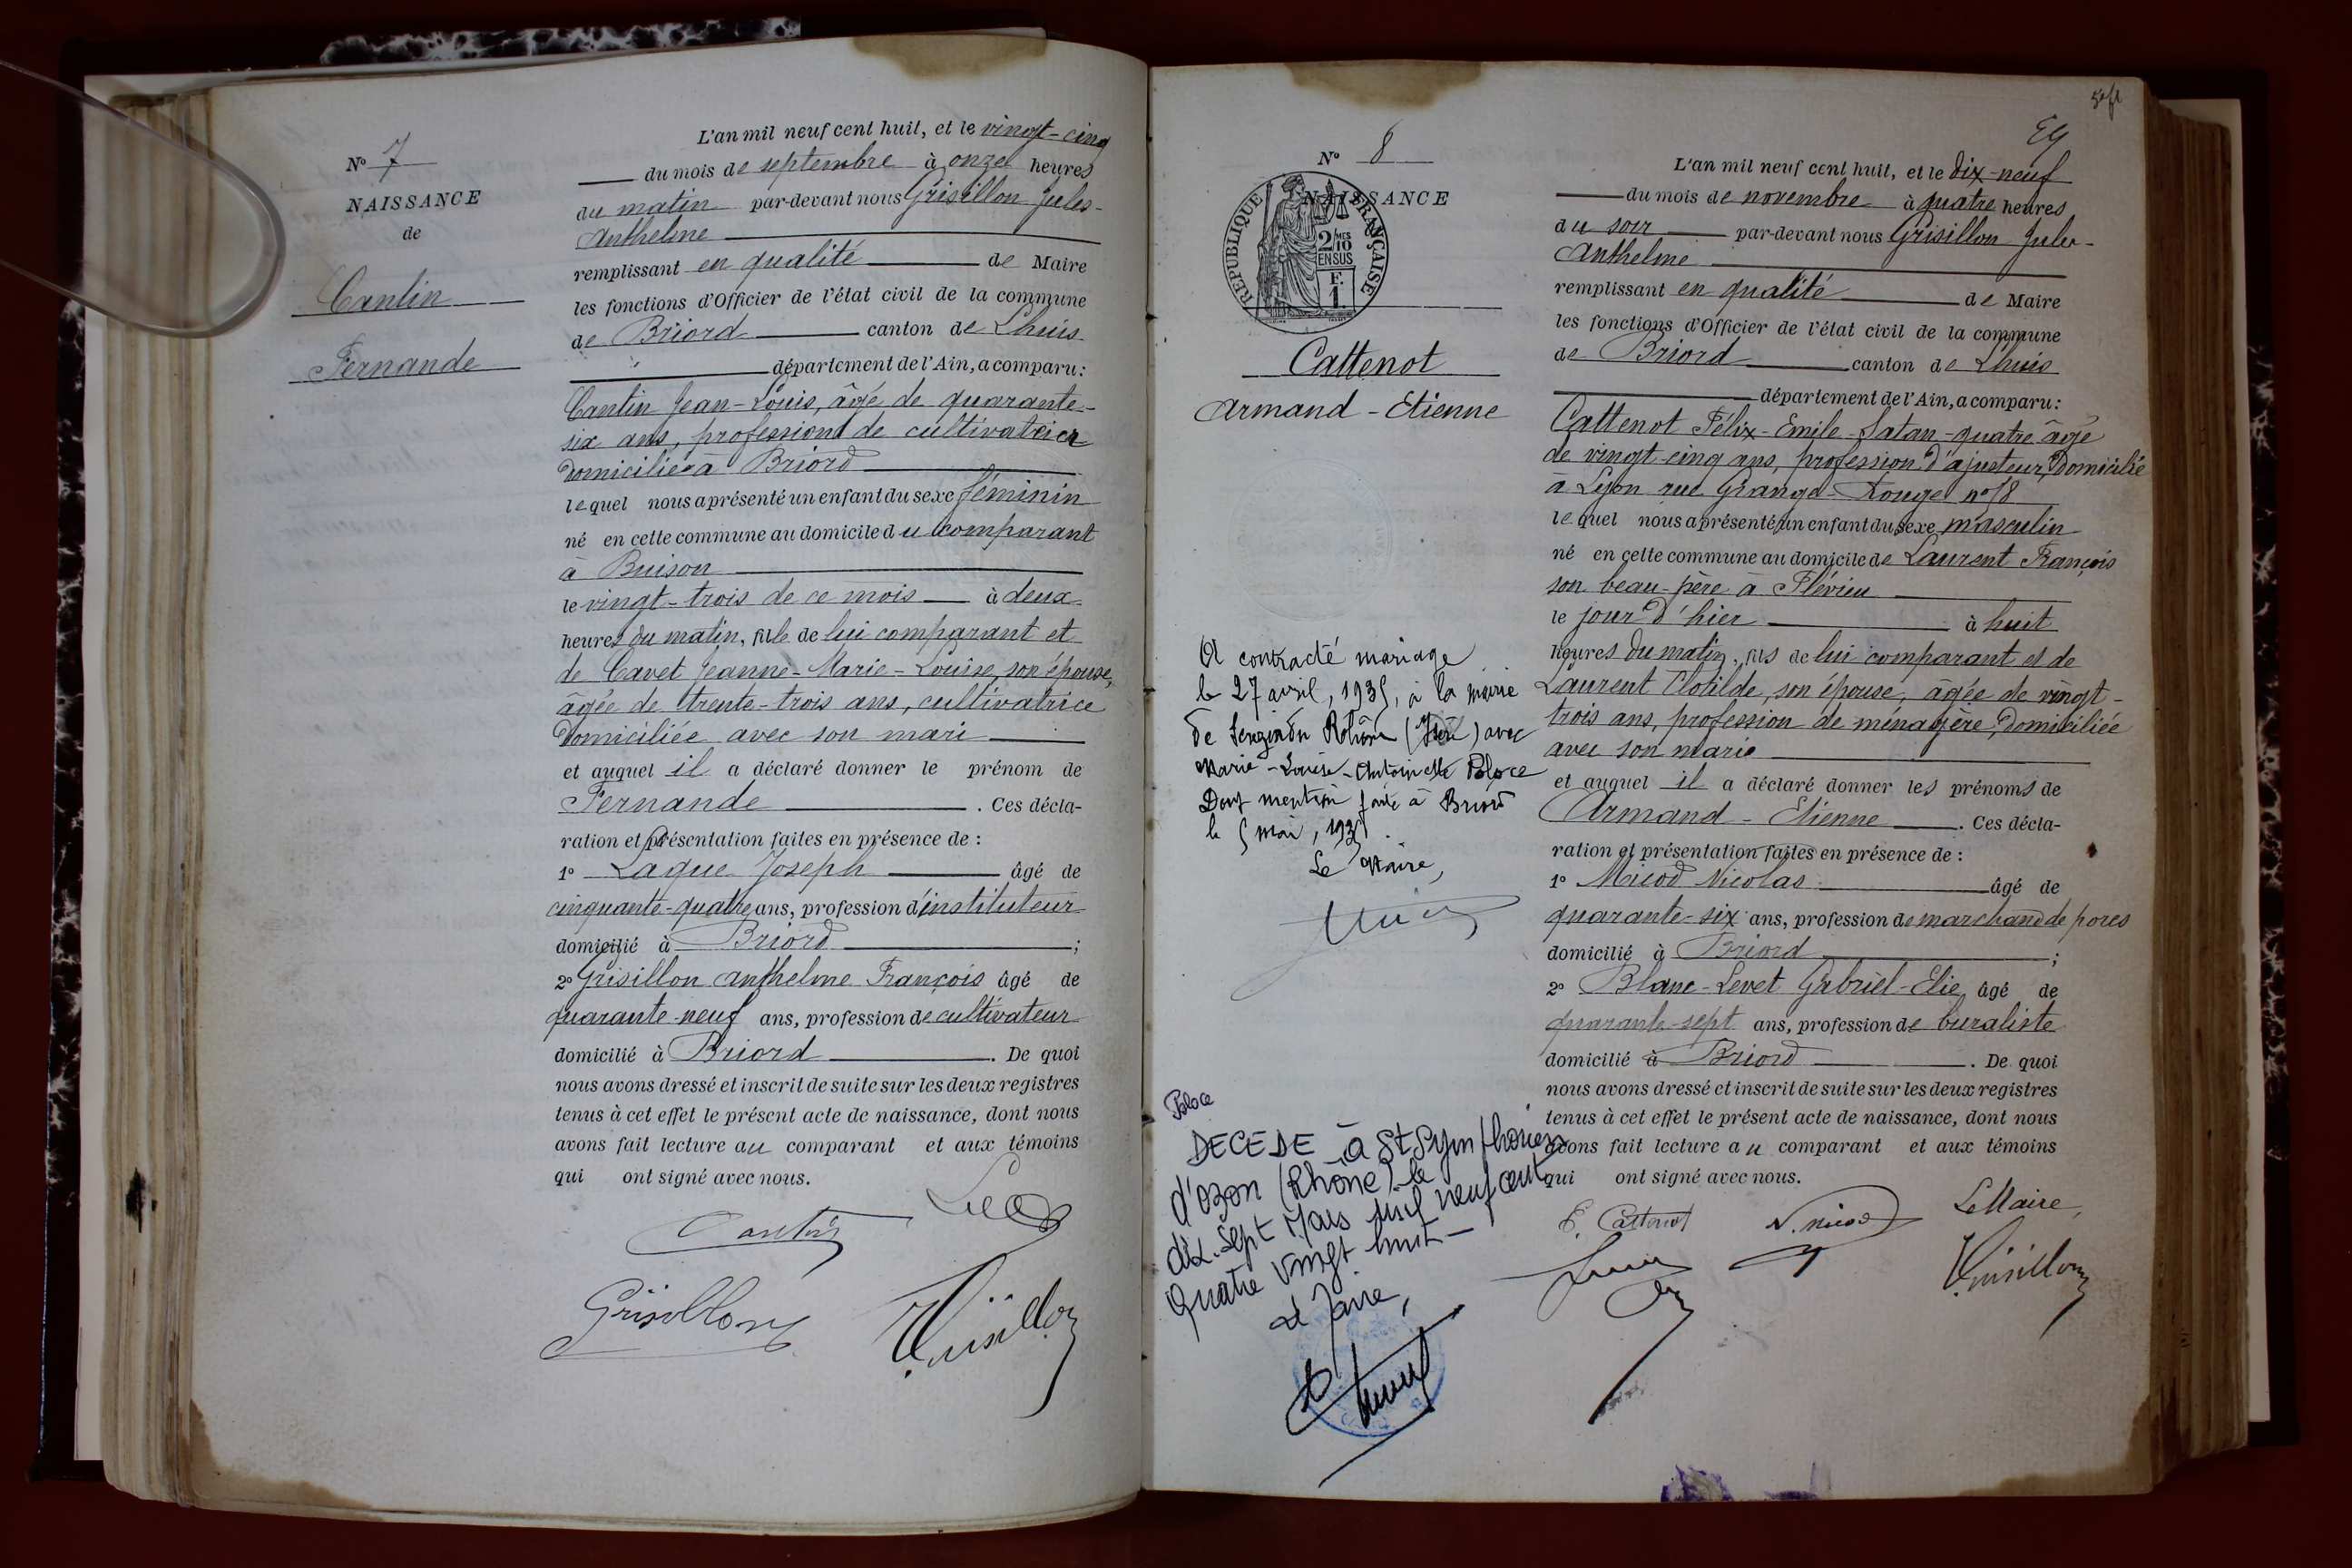 N° 7
NAISSANCE
de
Cantin
Fernande
L'an mil neuf cent huit, et le vingt-cinq
du mois de septembre à onze heures
du matin par-devant nous Grisillon Jules-
Anthelme
remplissant en qualité de Maire
les fonctions d'Officier de l'état civil de la commune
de Briord canton de Lhuis
département de l'Ain, a comparu:
Cantin Jean-Louis, âgé de quarante-
six ans, profession de
domicilié à Briord
lequel nous a présenté un enfant du sexe féminin
né en cette commune au domicile du comparant
à Buison
le vingt-trois de ce mois à deux
heures du matin, fils de lui comparant et
de Cavet Jeanne-Marie-Louise, son épouse,
âgée de trente-trois ans, cultivatrice
domiciliée avec son mari
et auquel il a déclaré donner le prénom de
Fernande . Ces décla-
ration et présentation faites en présence de :
1° Laque Joseph âgé de
cinquante-quatre ans, profession d'instituteur
domicilié à Briord ;
2° Grisillon Anthelme François âgé de
quarante-neuf ans, profession de cultivateur
domicilié à Briord . De quoi
nous avons dressé et inscrit de suite sur les deux registres
tenus à cet effet le présent acte de naissance, dont nous
avons fait lecture au comparant et aux témoins
qui ont signé avec nous.
Cantin
Grisillon
Grisillon
N° 8
NAISSANCE
REPUBLIQUE FRANÇAISE
2/10 MES
EN SUS
F.
1.
Cattenot
Armand-Etienne
A contracté mariage
le 27 avril, 1935, à la mairie
de (Isère) avec
Marie-Louise-Antoinette Poloce
Dont mention faite à Briord
le 5 mai, 1935.
Le Maire,
Poloce
DECEDE à St Symphorien
d'Ozon (Rhône) le
dix-sept Mars mil neuf cent
quatre vingt huit-
Le Maire,
59
L'an mil neuf cent huit, et le dix-neuf
du mois de novembre à quatre heures
du soir par-devant nous Grisillon Jules-
Anthelme
remplissant en qualité de Maire
les fonctions d'Officier de l'état civil de la commune
de Briord canton de Lhuis
département de l'Ain, a comparu:
Cattenot Félix-Emile-Satan-quatre âgé
de vingt-cinq ans, profession d'ajusteur, domicilié
à Lyon rue Grange-Rouge n° 18
lequel nous a présenté un enfant du sexe masculin
né en cette commune au domicile de Laurent François
son beau-père à Flévieu
le jour d'hier à huit
heures du matin, fils de lui comparant et de
Laurent Clotilde, son épouse, âgée de vingt-
trois ans, profession de ménagère, domiciliée
avec son mari
et auquel il a déclaré donner les prénoms de
Armand-Etienne . Ces décla-
ration et présentation faites en présence de :
1° Micod Nicolas âgé de
quarante-six ans, profession de marchand de porcs
domicilié à Briord ;
2° Blanc-Levet Gabriel-Elie âgé de
quarante-sept ans, profession de buraliste
domicilié à Briord . De quoi
nous avons dressé et inscrit de suite sur les deux registres
tenus à cet effet le présent acte de naissance, dont nous
avons fait lecture au comparant et aux témoins
qui ont signé avec nous.
E. Cattenot
Le Maire,
Grisillon